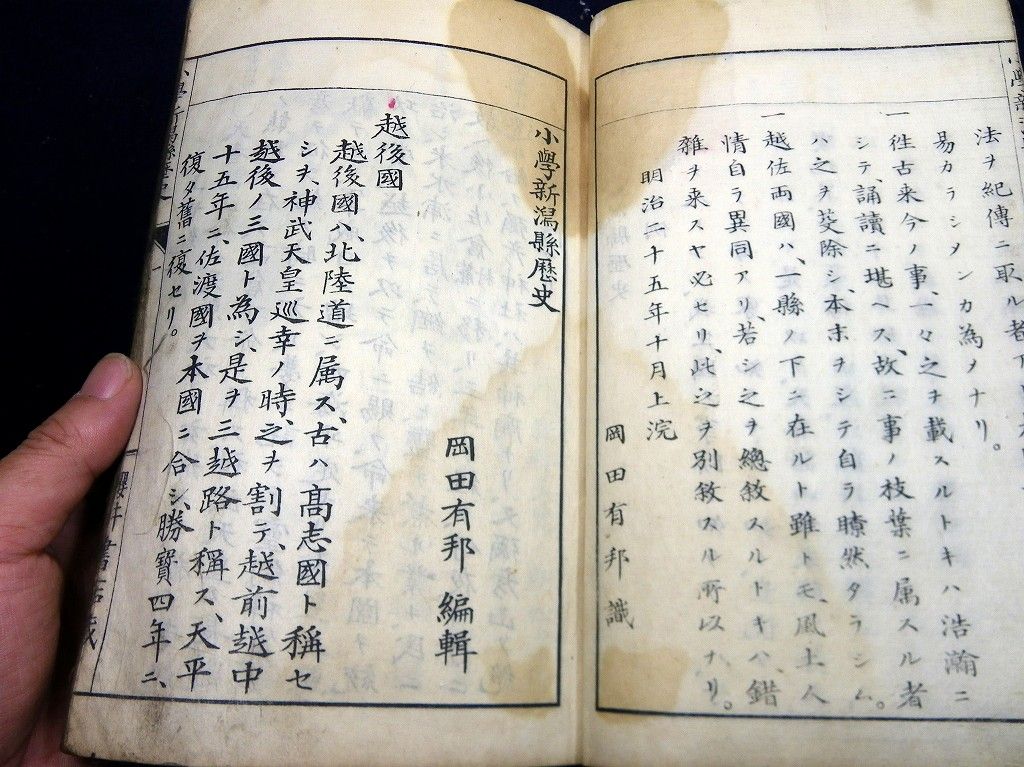 法ヲ紀傳ニ取ル者
易カラシメンカ為メナリ。
一往古来今ノ事、一々之ヲ載スルトキハ浩瀚ニ
シテ、誦讀ニ堪ヘス、故ニ事ノ枝葉ニ属スル者
ハ之ヲ芟除シ、本末ヲシテ自ラ瞭然タラシム。
一越佐両國ハ、一縣ノ下ニ在ルト雖トモ、風土人
情自ラ異同アリ、若シ之ヲ總敘スルトキハ、錯
雜ヲ来スヤ必セリ、此之ヲ別敘スル所以ナリ。
明治二十五年十月上浣
岡田有邦識
小學新潟縣歴史
岡田有邦編輯
越後國
越後國ハ、北陸道ニ属ス、古ハ髙志國ト稱セ
シヲ、神武天皇巡幸ノ時、之ヲ割テ、越前越中
越後ノ三國ト為シ、是ヲ三越路ト稱ス、天平
十五年ニ、佐渡國ヲ本國ニ合シ、勝寶四年ニ、
復タ舊ニ復セリ。